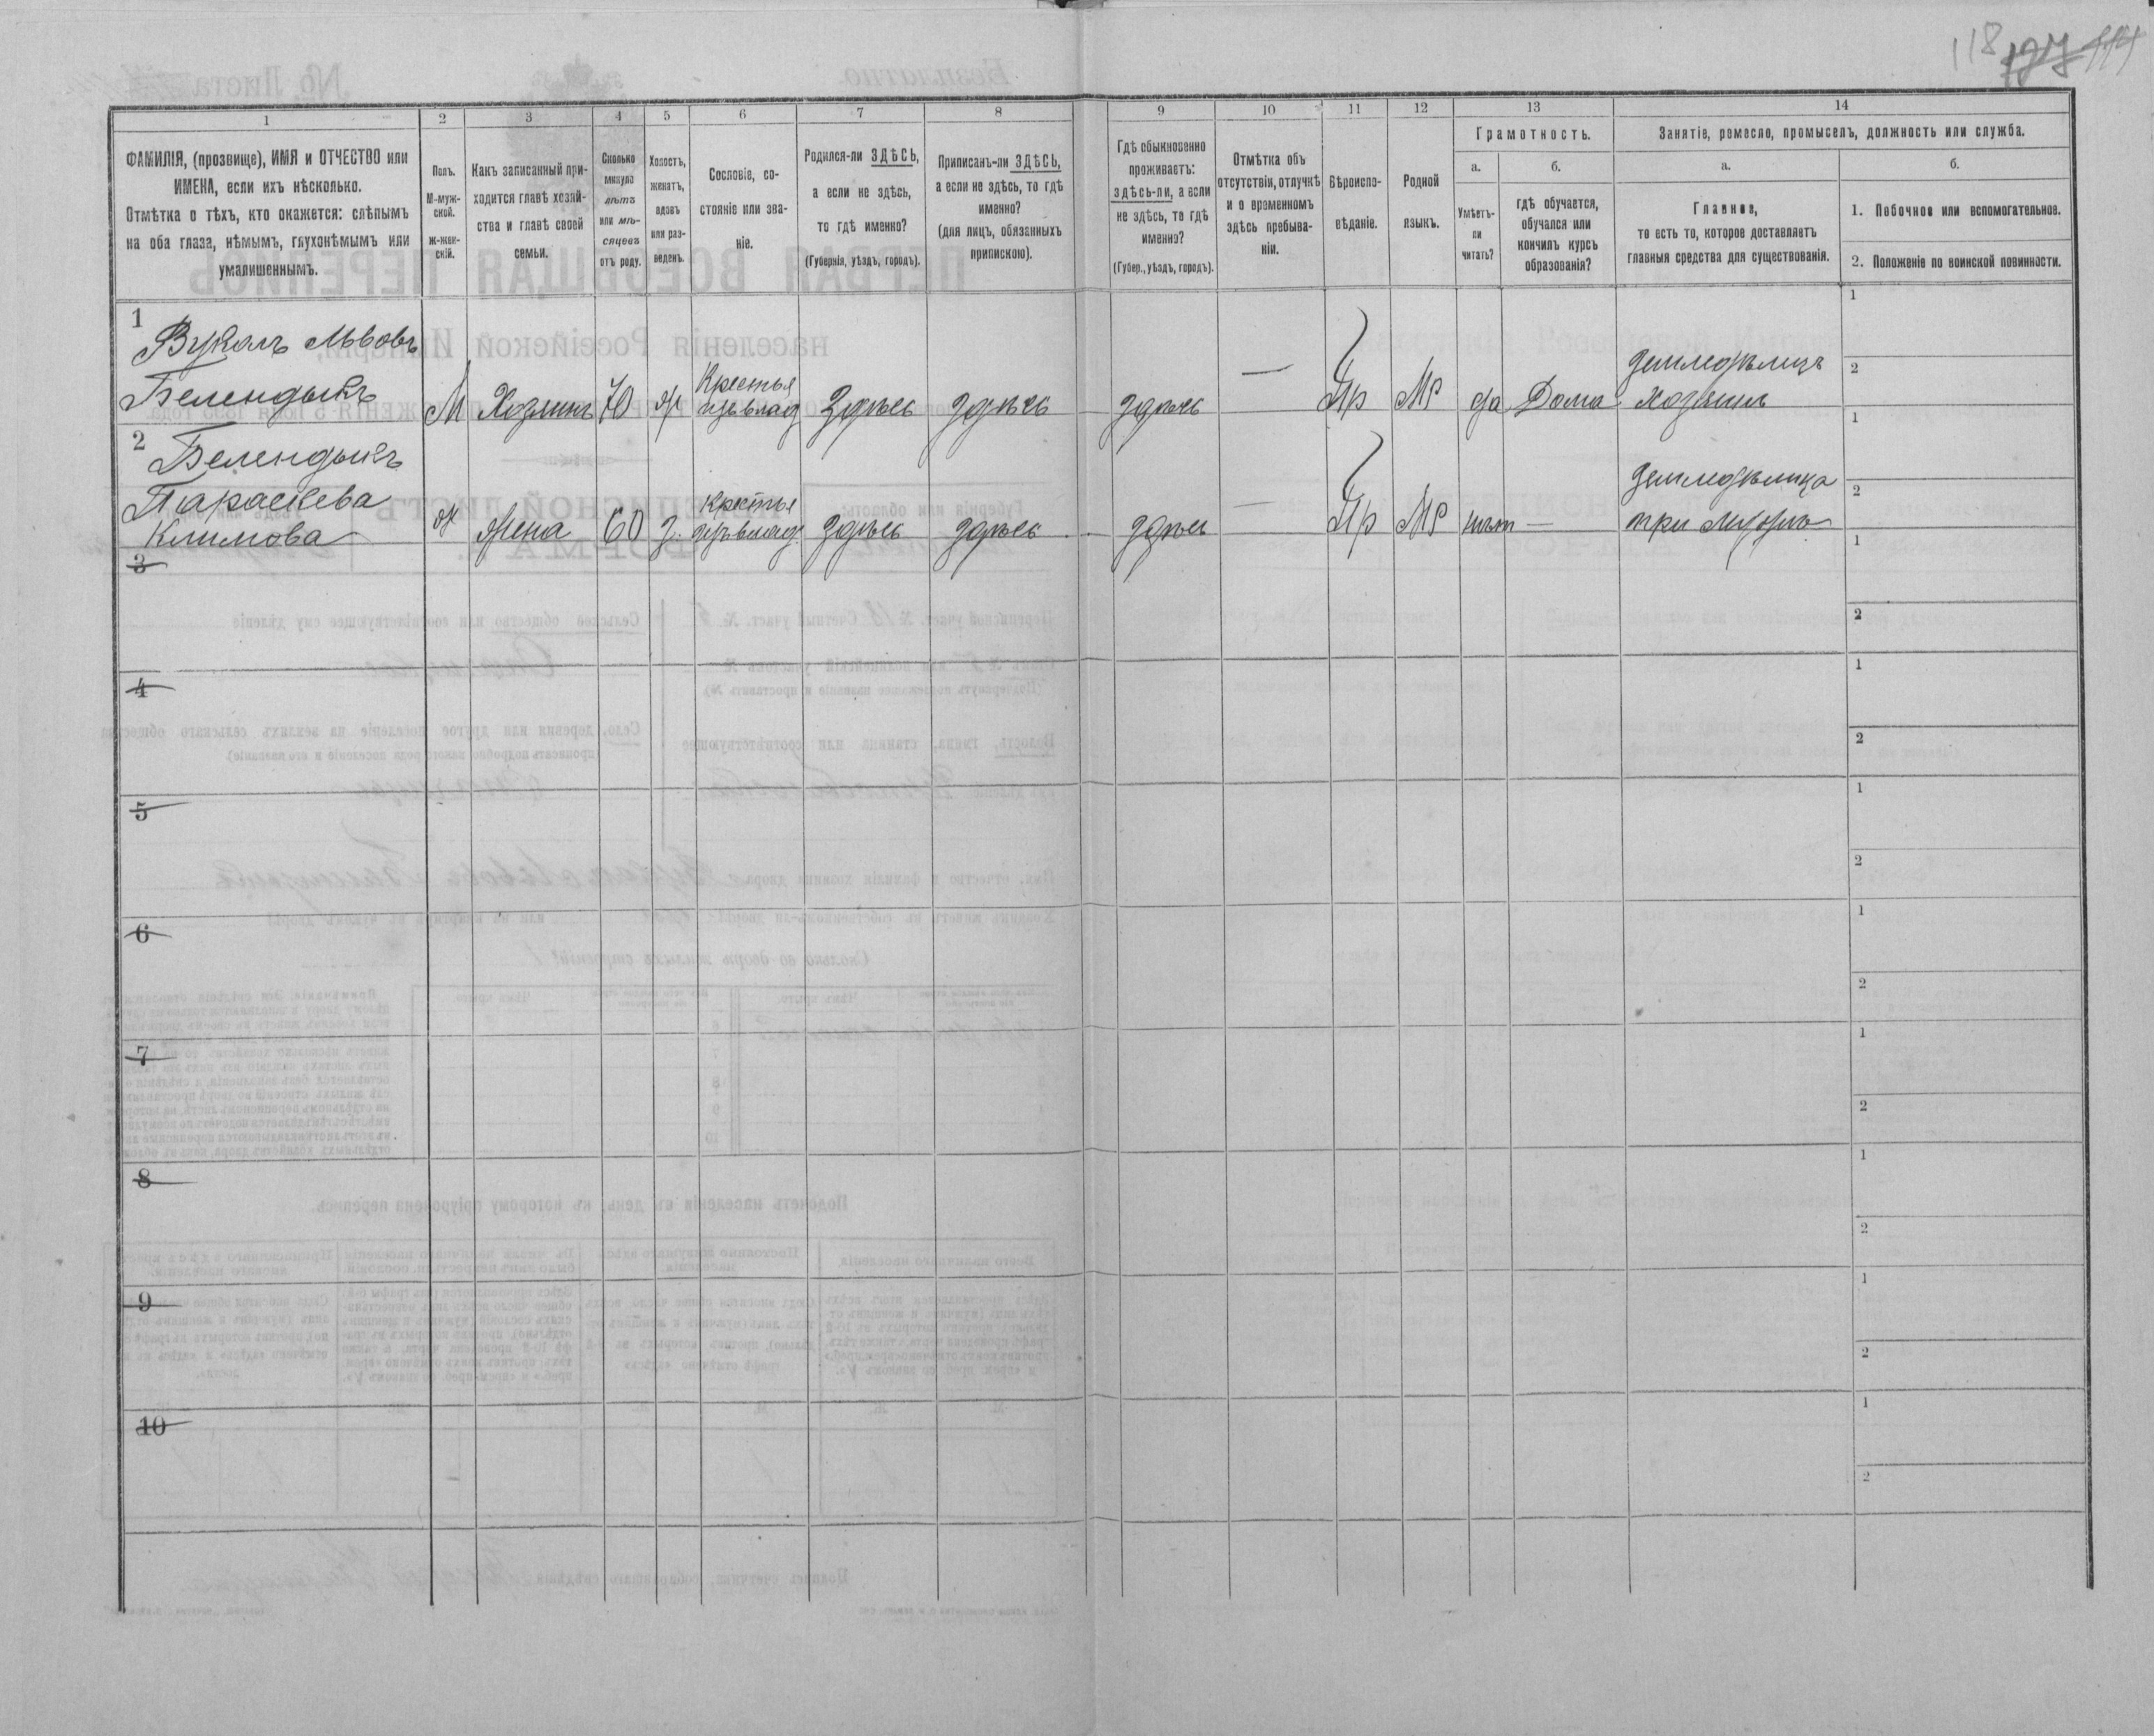 118 127 114
1
2
3
4
5
6
7
8
9
10
11
12
13
14
ФАМИЛІЯ, (прозвище), ИМЯ и ОТЧЕСТВО или
ИМЕНА, если ихъ нѣсколько.
Отмѣтка о тѣхъ, кто окажется: слѣпымъ
на оба глаза, нѣмымъ, глухонѣмымъ или
умалишеннымъ.
Полъ.
М-муж-
ской.
Ж-жен-
скій.
Какъ записанный при-
ходится главѣ хозяй-
ства и главѣ своей
семьи.
Сколько
минуло
лѣтъ
или мѣ-
сяцевъ
отъ роду.
Холостъ,
женатъ,
вдовъ
или раз-
веденъ.
Сословіе, со-
стояніе или зва-
ніе.
Родился-ли ЗДѢСЬ,
а если не здѣсь,
то гдѣ именно?
(Губернія, уѣздъ, городъ).
Приписанъ-ли ЗДѢСЬ,
а если не здѣсь, то гдѣ
именно?
(для лицъ, обязанныхъ
припискою).
Гдѣ обыкновенно
проживаетъ:
здѣсь-ли, а если
не здѣсь, то гдѣ
именно?
(Губер., уѣздъ, городъ).
Отмѣтка объ
отсутствіи, отлучкѣ
и о временномъ
здѣсь пребыва-
ніи.
Вѣроиспо-
вѣданіе.
Родной
языкъ.
Грамотность.
а.
Умѣетъ-
ли
читать?
б.
гдѣ обучается,
обучался или
кончилъ курсъ
образованія?
Занятіе, ремесло, промыселъ, должность или служба.
а.
Главное,
то есть то, которое доставляетъ
главныя средства для существованія.
б.
1. Побочное или вспомогательное.
2. Положеніе по воинской повинности.
1
Вуколъ Львовъ
Белендыкъ
М Хозяинъ 70 Крестья
здѣсь здѣсь здѣсь — Пр Мр да Дома
земледѣлецъ
хозяинъ
1
2
2
Белендыкъ
Параскева
Климова
ж жена 60 з. Крестья
здѣсь здѣсь здѣсь — Пр Мр нѣтъ —
земледѣлица
при мужѣ
1
2
3
1
2
4
1
2
5
1
2
6
1
2
7
1
2
8
1
2
9
1
2
10
1
2